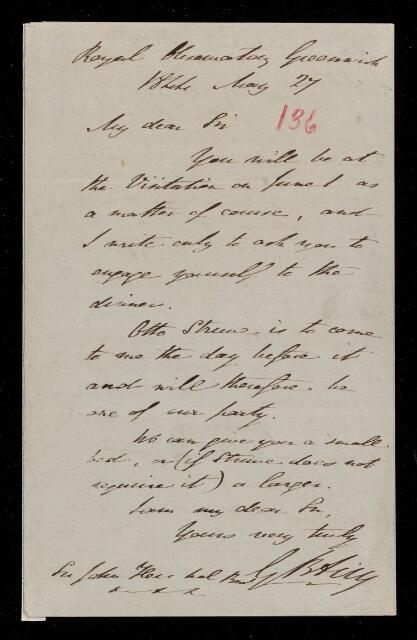 Royal Observatory Greenwich
1844 May 27
My dear Sir 136
You will be at
the Visitation on June 1 as
a matter of course, and
I write only to ask you to
engage yourself to the
dinner.
Otto Struve is to come
to me the day before it
and will therefore be
one of our party.
We can give you a small
bed, or (if Struve does not
require it) a larger.
I am my dear Sir,
Yours very truly
G B Airy
Sir John Herschel Bart